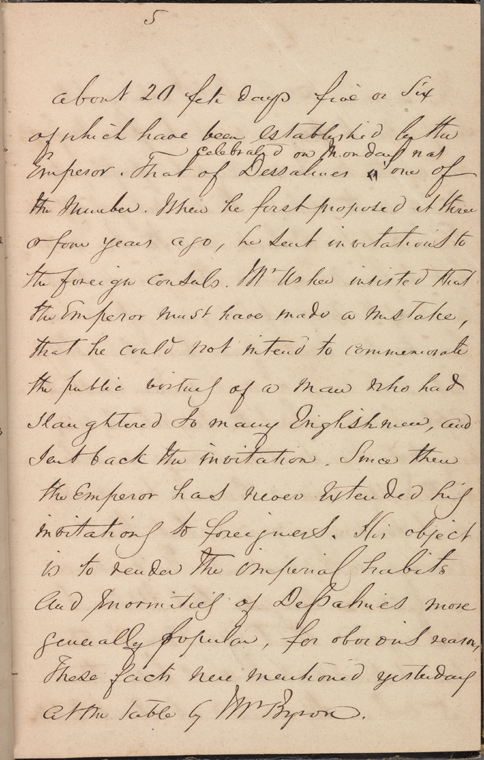 5
about 20 fete days five or Six
of which have been established by the
celebrated on Monday
Emperor. That of Dessalines one of
the Number. When he first proposed it three
or four years ago, he sent invitations to
the foreign consuls. Mr Usher insisted that
the Emperor must have made a mistake,
that he could not intend to commemorate
the public virtues of a man who had
slaughtered so many Englishmen, and
sent back the invitation. Since then
the Emperor has never extended his
invitations to foreigners. His object
is to render the imperial habits
and enormities of Dessalines more
generally popular, for obvious reasons,
These facts were mentioned yesterday
at the table by Mr Byron.